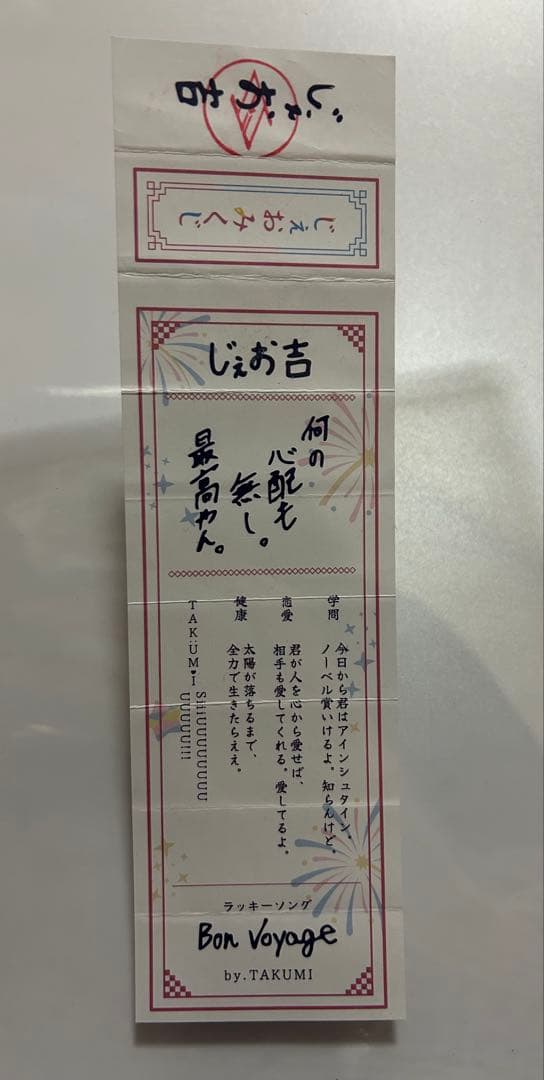 じぇお吉
じぇおみくじ
じぇお吉
何の
心配も
無し。
最高やん。
学問
今日から君はアインシュタイン。
ノーベル賞いけるよ。知らんけど。
恋愛
君が人を心から愛せば、
相手も愛してくれる。愛してるよ。
健康
太陽が落ちるまで、
全力で生きたらええ。
TAKUMI♥I SiiiUUUUUUUU
UUUUU!!!
ラッキーソング
Bon Voyage
by.TAKUMI